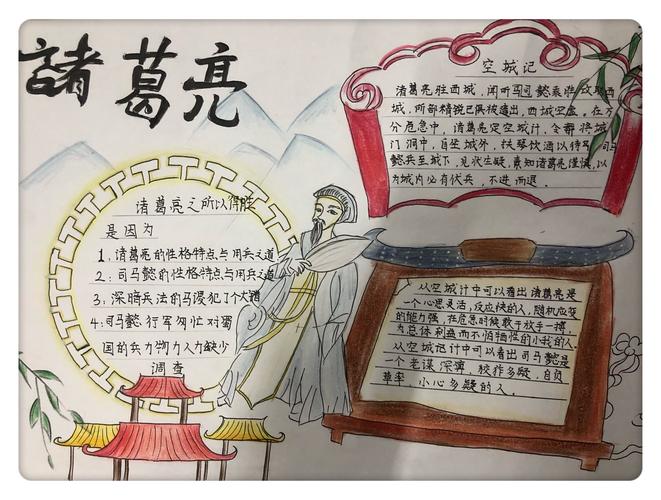 諸葛亮
空城记
诸葛亮驻西城,闻听司马懿乘胜攻取西
城,所部精锐已俱被遣出,西城空虚。在万
分危急中,诸葛亮定空城计,令都将城
门洞中,自坐城外,扶琴饮酒以待
懿兵至城下,见状生疑,素知诸葛亮谨慎,以
为城内必有伏兵,不进而退.
诸葛亮之所以得胜
是因为
1.诸葛亮的性格特点与用兵之道
2:司马懿的性格特点与用兵之道
3:深暗兵法的马谡犯了个大错
4:司马懿行军匆忙对蜀
国的兵力物力人力缺少
调查
从空城计中可以看出诸葛亮是
一个心思灵活,反应快的人,随机应变
的能力强,在危急时候敢于放手一搏,
为总体利益而不怕牺牲的小我的人.
从空城记计中可以看出司马懿是
一个老谋深算,狡诈多疑,自负
草率,小心多疑的人.